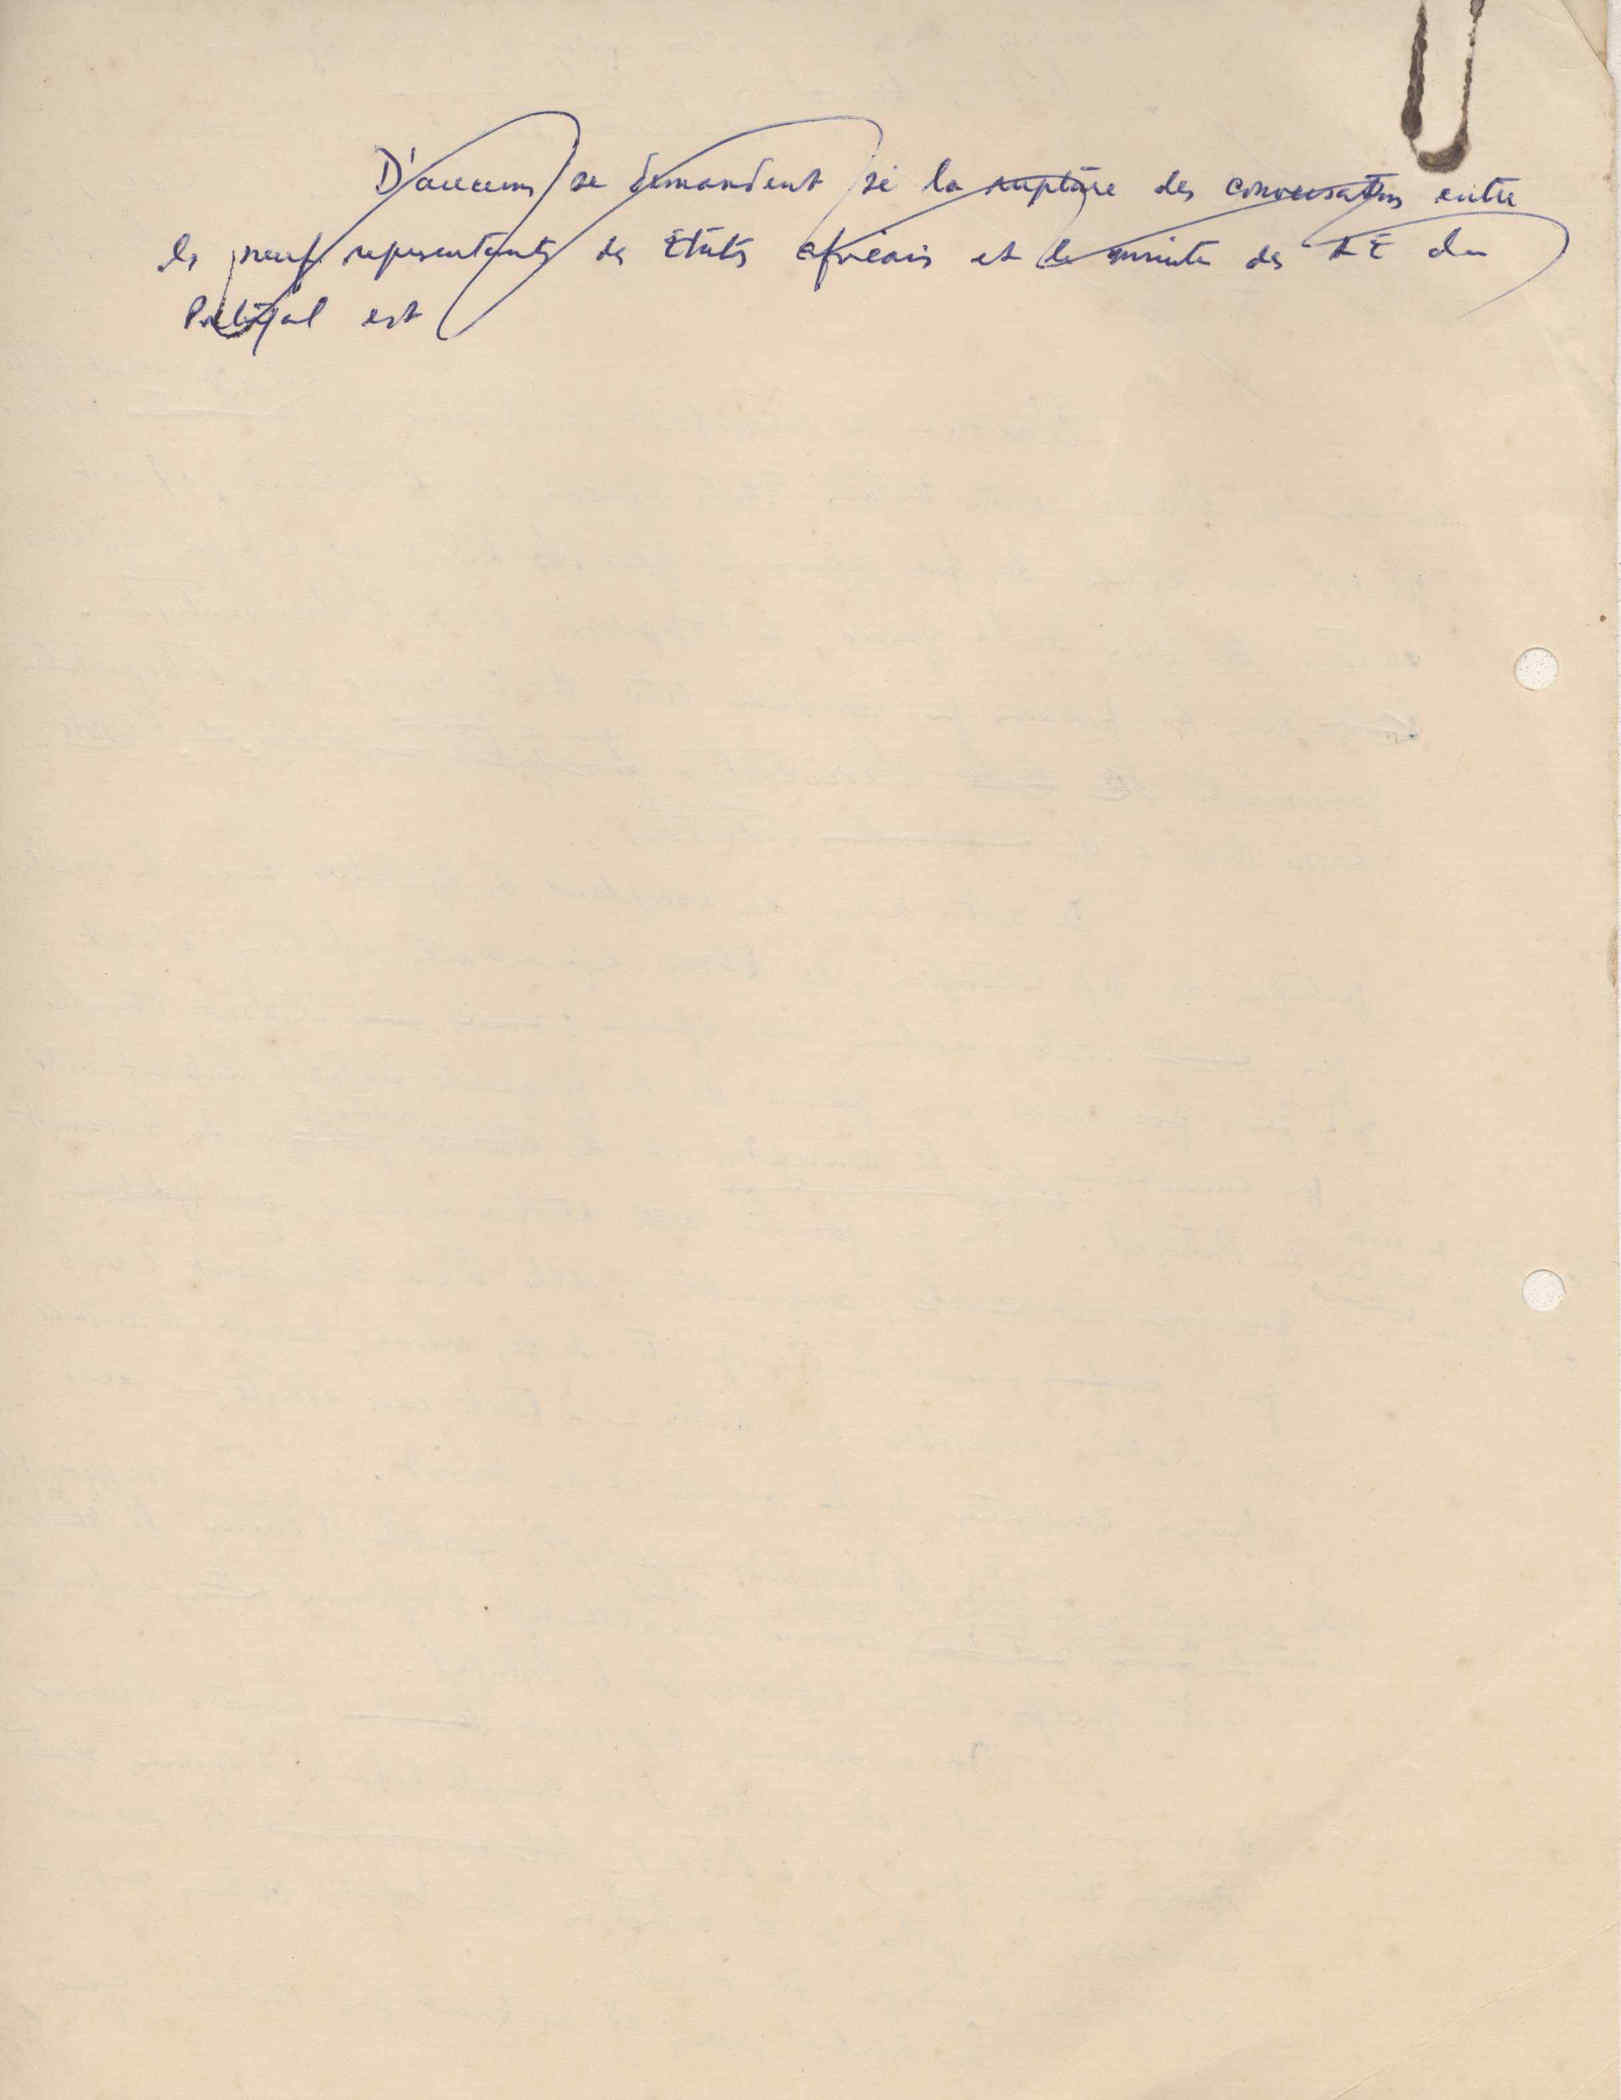 D'aucuns se demandent si la rupture des conversatons entre
les neuf representants des Etats africais et le ministe des AE du
Portugal est